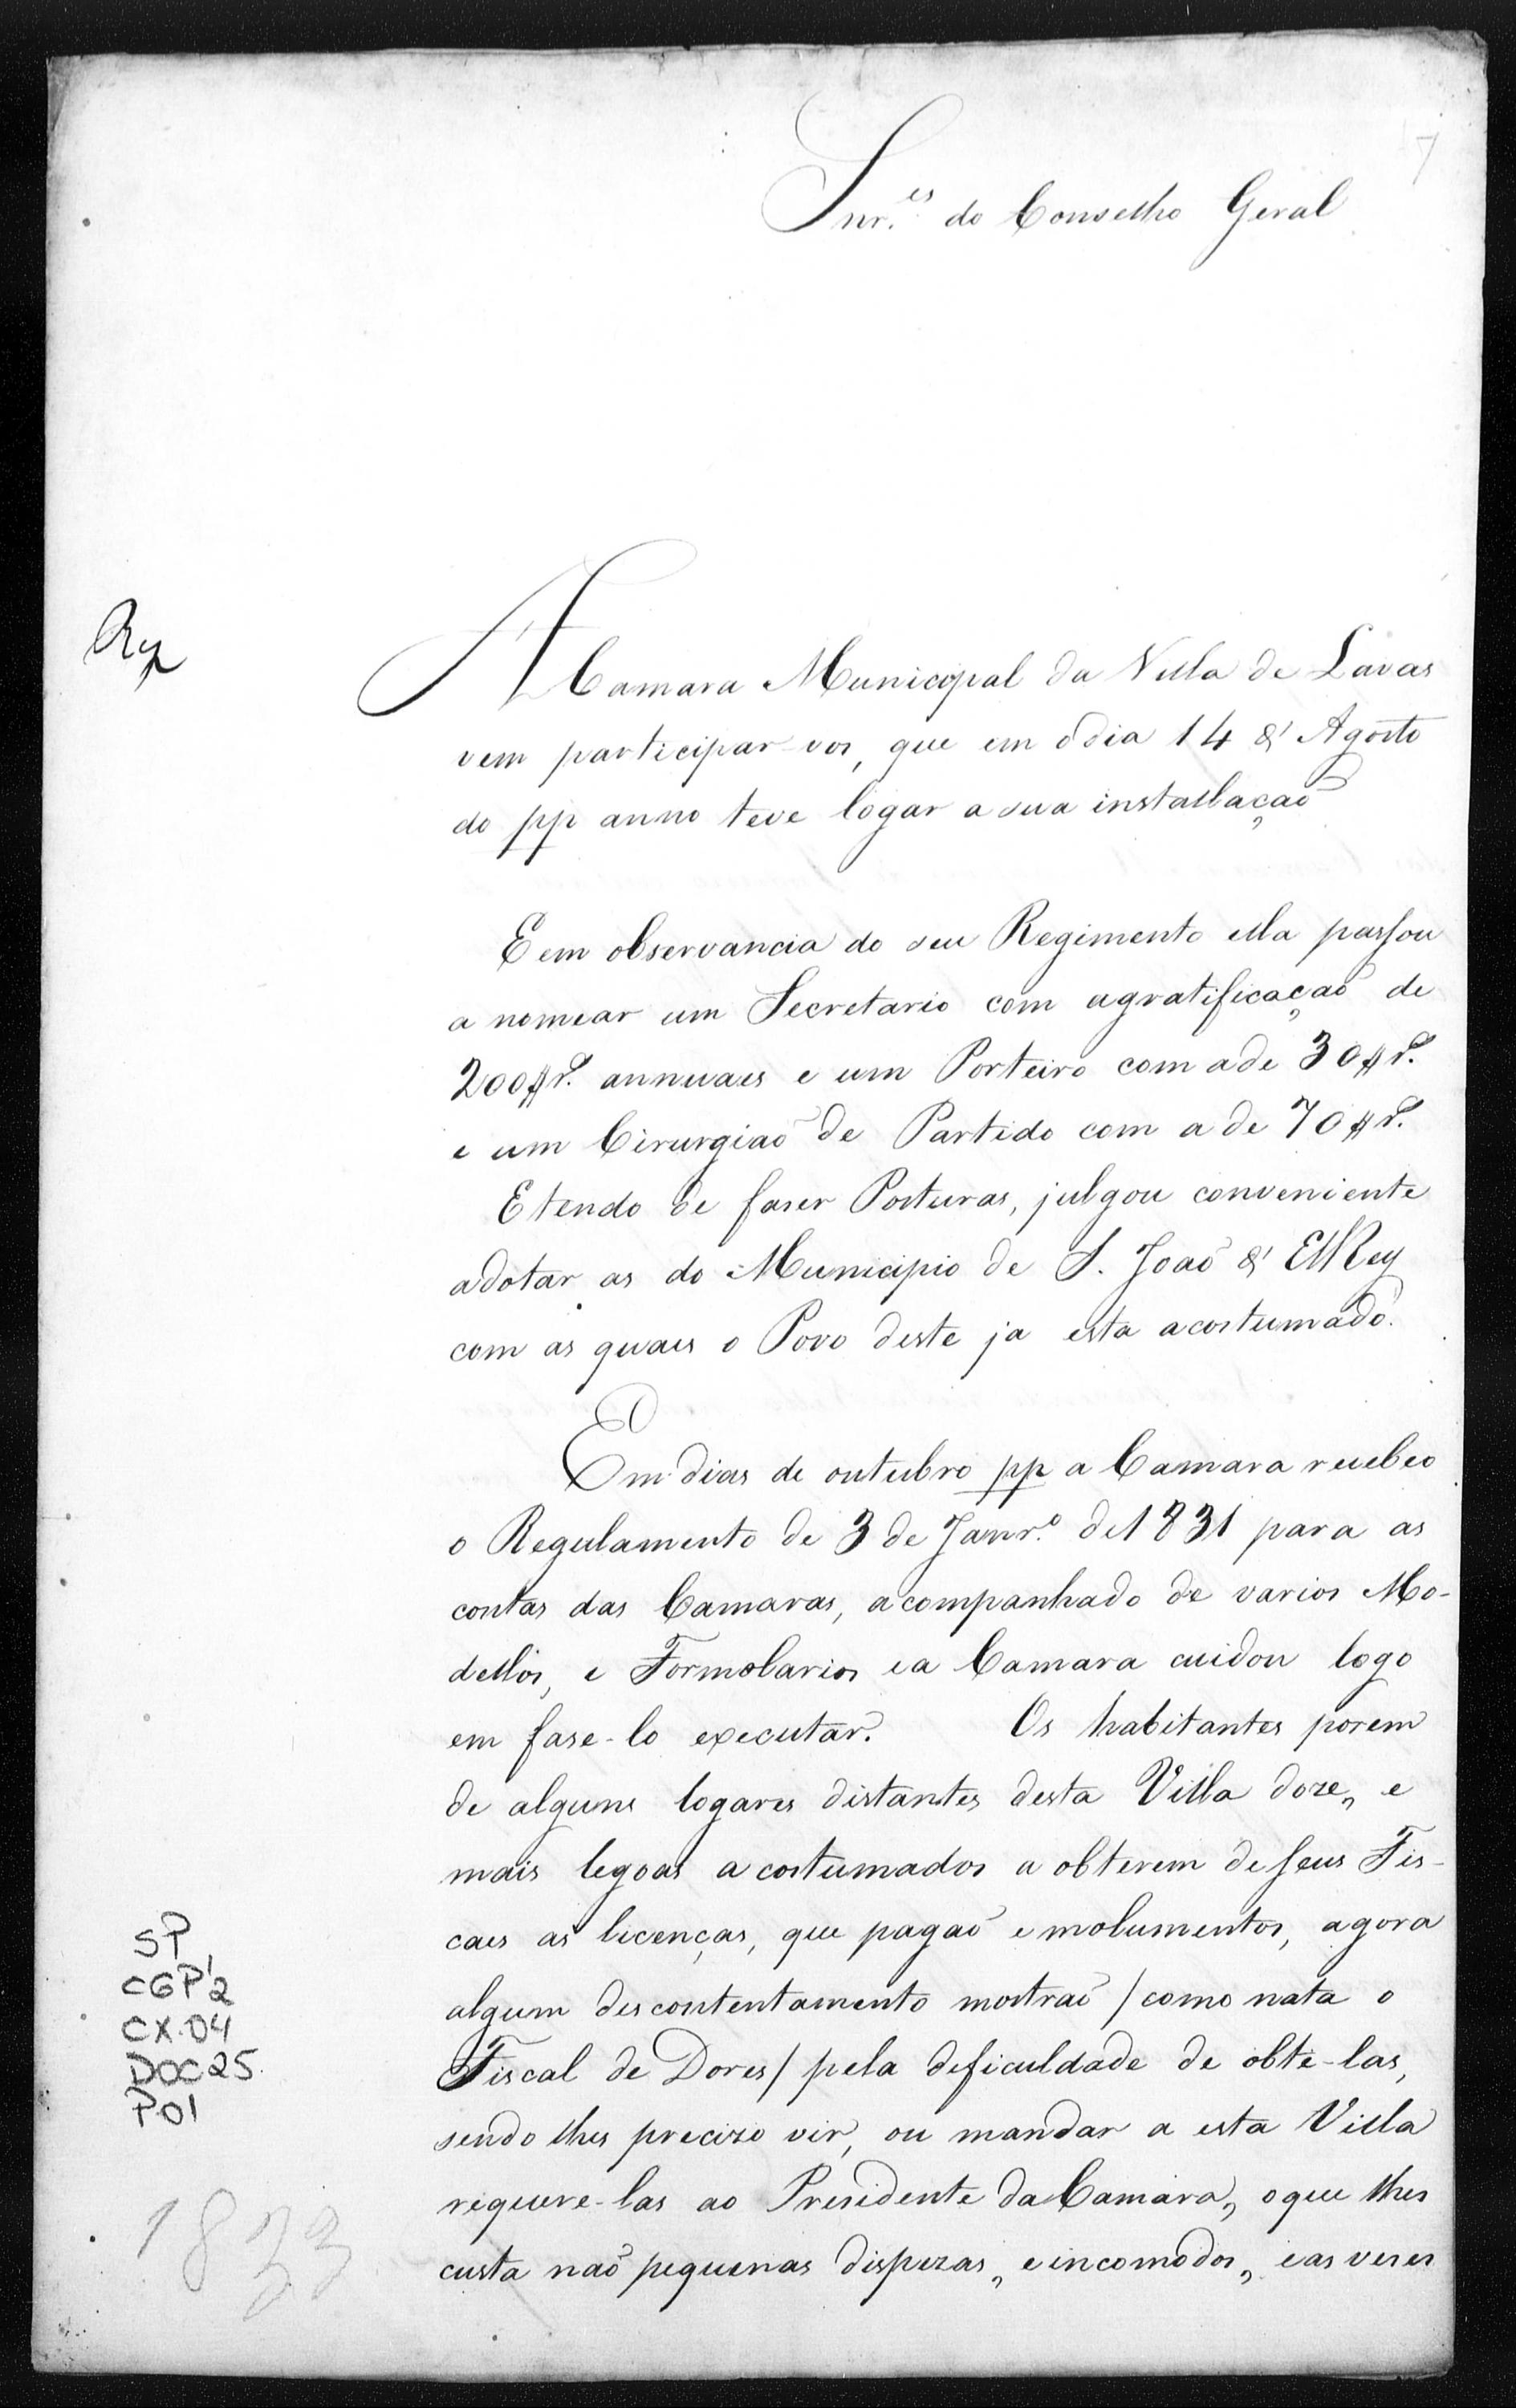 7
Snr.es do Conselho Geral
Rg
A Camara Municipal da Villa de Lavras
vem participar-vos, que em o dia 14 d' Agosto
do pp anno teve logar a sua installaçaõ
E em observancia do seu Regimento ella passou
a nomear um Secretario com agratificaçaõ de
200$r.s annuaes e um Porteiro com ade 30$r.s
e um Cirurgiaõ de Partido com a de 70$r.s
E tendo de faser Posturas, julgou conveniente
adotar as do Municipio de S. Joaõ d' ElRey
com as quaes o Povo deste ja esta acostumado.
Em dias de outubro pp a Camara recebeo
o Regulamento de 3 de Janr.o de 1831 para as
contas das Camaras, acompanhado de varios Mo-
dellos, e Formolarios ea Camara cuidou logo
em fase-lo executar. Os habitantes porem
de alguns logares distantes desta Villa doze, e
mais legoas acostumados a obterem de seus Fis-
caes as licenças, que pagaõ emolumentos, agora
algum descontentamento mostraõ / como nata o
Fiscal de Dores / pela deficuldade de obte-las,
sendo lhes precizo vir, ou mandar a esta Villa
requere-las ao Presidente da Camara, oque lhes
custa naõ pequenas dispezas, e incomodos, eas veses
SP
CGP 1/2
CX.04
DOC 25.
P.01
1833